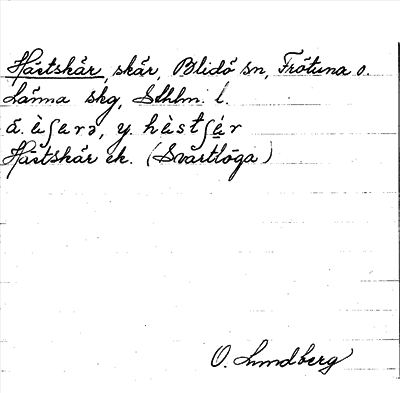 Hästskär, skär, Blidö sn, Frötuna o.
Länna skg, Sthlm. l.
ä. ὲʃerə, y. hὲstʃér
Hästskär ek. (Svartlöga)
O. Lundberg